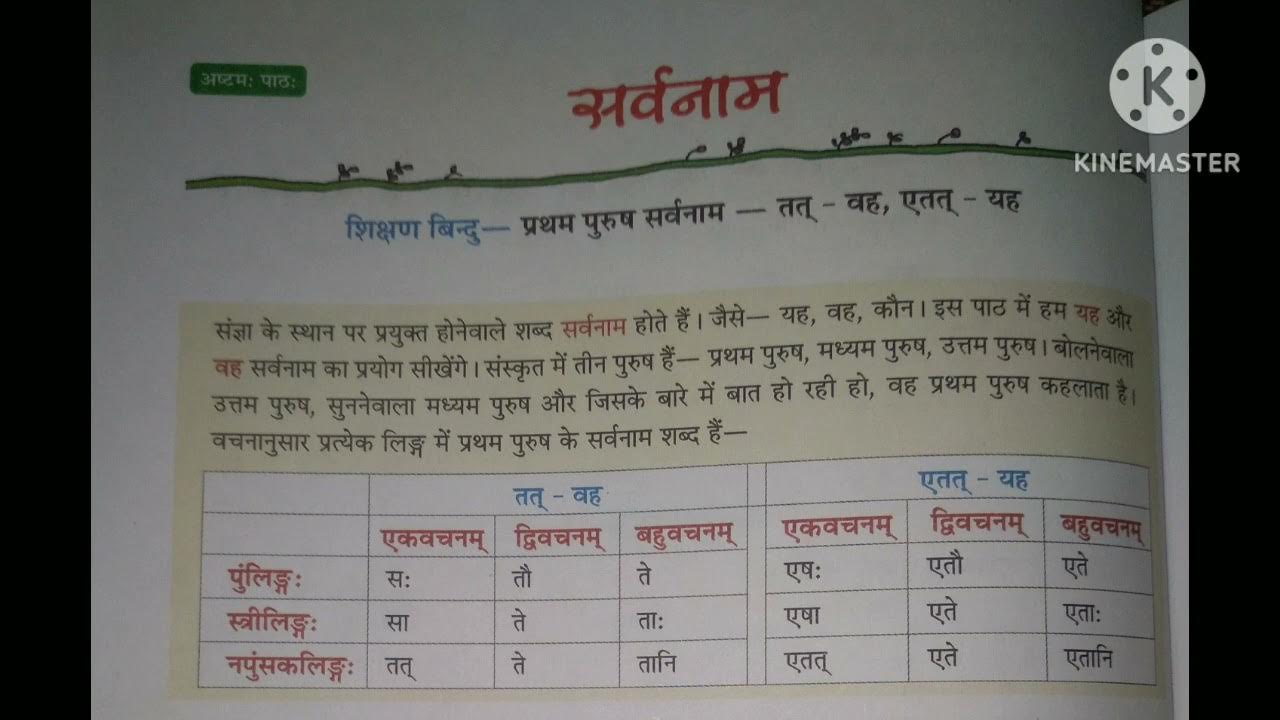 अष्टमः पाठः
सर्वनाम
KINEMASTER
शिक्षण बिन्दु— प्रथम पुरुष सर्वनाम — तत् - वह, एतत् - यह
संज्ञा के स्थान पर प्रयुक्त होनेवाले शब्द सर्वनाम होते हैं। जैसे— यह, वह, कौन। इस पाठ में हम यह और
वह सर्वनाम का प्रयोग सीखेंगे। संस्कृत में तीन पुरुष हैं— प्रथम पुरुष, मध्यम पुरुष, उत्तम पुरुष। बोलनेवाला
उत्तम पुरुष, सुननेवाला मध्यम पुरुष और जिसके बारे में बात हो रही हो, वह प्रथम पुरुष कहलाता है।
वचनानुसार प्रत्येक लिङ्ग में प्रथम पुरुष के सर्वनाम शब्द हैं—
तत् - वह एतत् - यह
एकवचनम् द्विवचनम् बहुवचनम् एकवचनम् द्विवचनम् बहुवचनम्
पुंलिङ्गः सः तौ ते एषः एतौ एते
स्त्रीलिङ्गः सा ते ताः एषा एते एताः
नपुंसकलिङ्गः तत् ते तानि एतत् एते एतानि